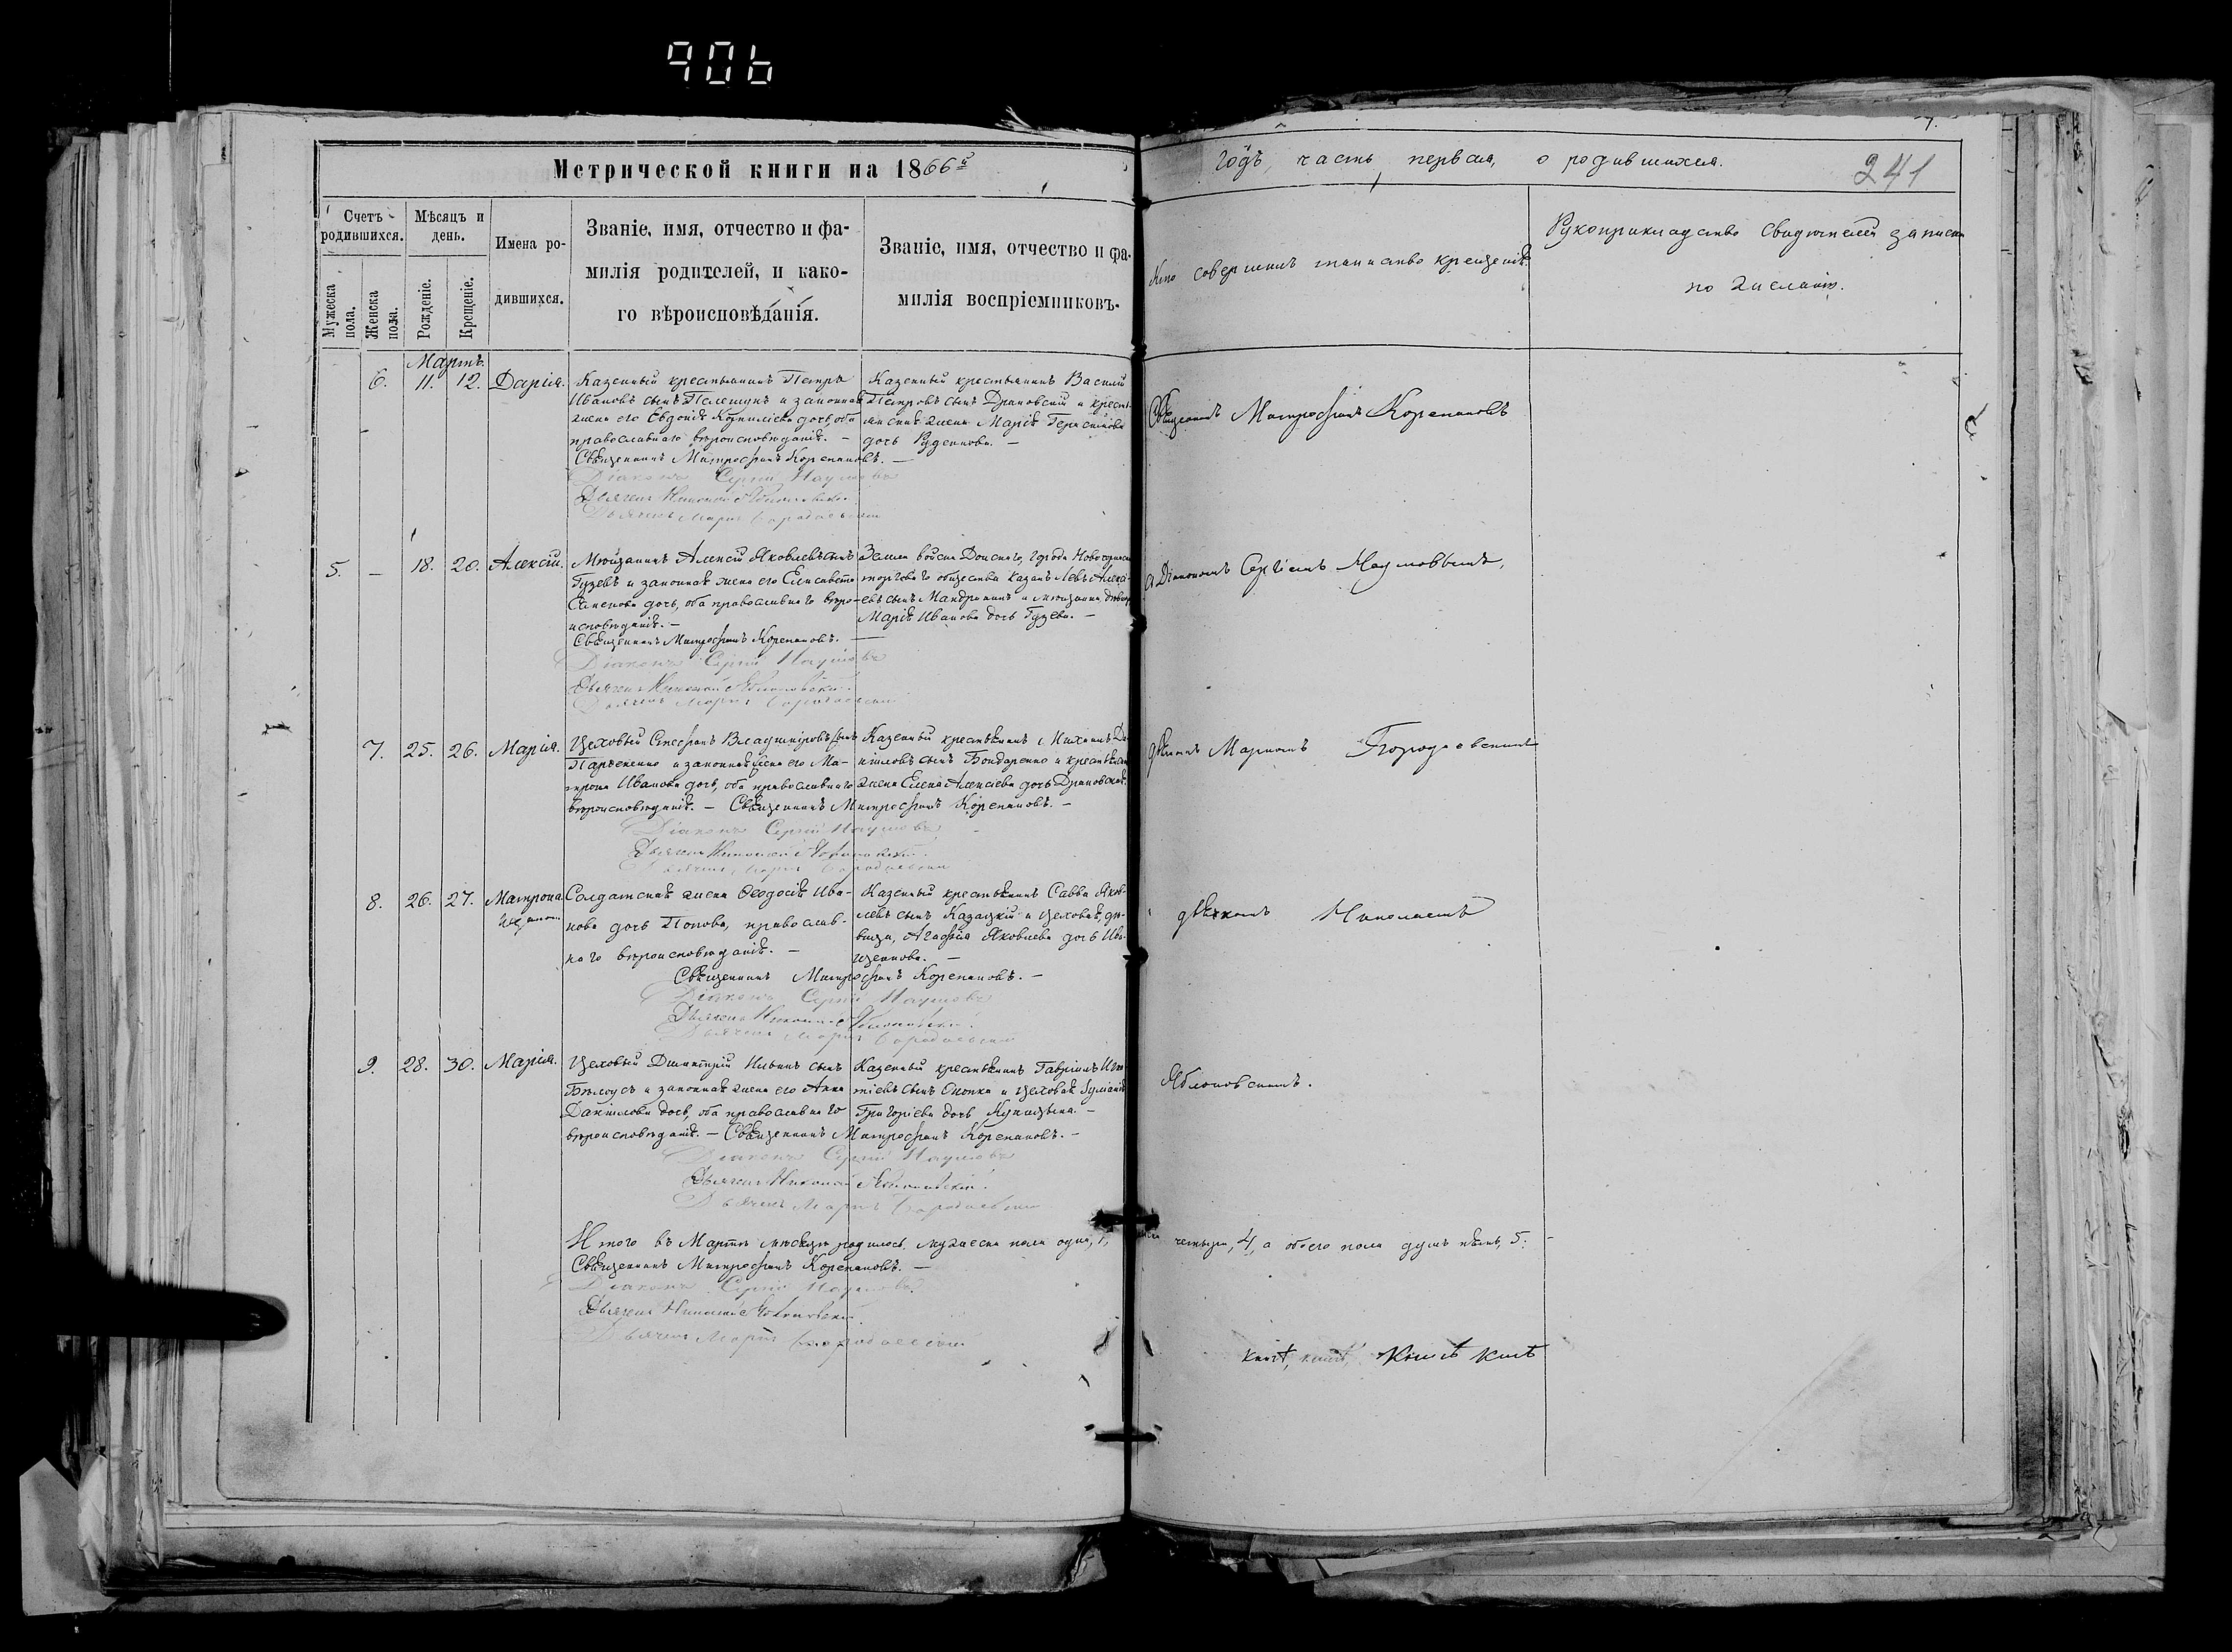 906
Метрической книги на 1866й
годъ, часть первая, о родившихся.
241
Счетъ родившихся.
Мѣсяцъ и день.
Имена родившихся.
Званіе, имя, отчество и фа-
милія родителей, и како-
го вѣроисповѣданія.
Званіе, имя, отчество и фа-
милія воспріемниковъ.
Мужеска пола.
Женска пола.
Рожденіе.
Крещеніе.
Кто совершилъ таинство крещенія.
Рукоприкладство свидѣтелей записи
по желанію.
Мартъ.
6. 11. 12. Дарія.
Казенный крестьянинъ Петръ
Ивановъ сынъ и законная
жена его Евдокія Корнилієва дочь, оба
православнаго вѣроисповѣданія. —
Священникъ Митрофанъ Корепановъ. —
Діаконъ Сергій Наумовъ
Дьячекъ Николай Яблоновскій
Дьячекъ Маркъ Городаевскій
Казенный крестьянинъ Василій
Петровъ сынъ Драновскій и кресть-
янская жена Марія Герасимова
дочь Руденкова. —
Священникъ Митрофанъ Корепановъ
5. — 18. 20. Алексій.
Мѣщанинъ Алексій Яковлевъ сынъ
Гузевъ и законная жена его Елисавета
дочь, оба православнаго вѣро-
исповѣданія. —
Священникъ Митрофанъ Корепановъ. —
Діаконъ Сергій Наумовъ
Дьячекъ Николай Яблоновскій
Дьячекъ Маркъ Городаевскій
Земли войска Донскаго, города Новочеркаска
торговаго общества казакъ Левъ Алексѣ-
евъ сынъ Мандрыкинъ и мѣщанка, девица
Марія Иванова дочь Гузева. —
Діакономъ Сергіемъ Наумовымъ,
7. 25. 26. Марія.
Цеховый Стефанъ Владиміровъ сынъ
Пархоменко и законная жена его Ма-
трона Иванова дочь, оба православнаго
вѣроисповѣданія. — Священникъ Митрофанъ Корепановъ. —
Діаконъ Сергій Наумовъ
Дьячекъ Николай Яблоновскій
Дьячекъ Маркъ Городаевскій
Казенный крестьянинъ Михаилъ Да-
ніиловъ сынъ Бондаренко и крестьянская
жена Елена Алексіева дочь Драновская.
дьячкомъ Маркомъ Городаевскимъ
8. 26. 27. Матрона
незакон.
Солдатская жена Ѳеодосія Ива-
нова дочь Попова, православ-
наго вѣроисповѣданія. —
Священникъ Митрофанъ Корепановъ. —
Діаконъ Сергій Наумовъ
Дьячекъ Николай Яблоновскій.
Дьячекъ Маркъ Городаевскій
Казенный крестьянинъ Савва Яков-
левъ сынъ Казацкій и цеховая, дѣ-
вица, Агафія Яковлева дочь Ива-
щенкова. —
дьячкомъ Николаемъ
9. 28. 30. Марія.
Цеховый Димитрій Ильинъ сынъ
Бѣлоусъ и законная жена его Анна
Даніилова дочь, оба православнаго
вѣроисповѣданія. — Священникъ Митрофанъ Корепановъ. —
Діаконъ Сергій Наумовъ
Дьячекъ Николай Яблоновскій.
Дьячекъ Маркъ Городаевскій
Казенный крестьянинъ Гавріилъ Игна-
тіевъ сынъ и цеховая Іуліанія
Григоріева дочь Купицына. —
Яблоновскимъ.
Итого въ Мартѣ мѣсяцѣ родилось, мужеска пола одинъ, 1, женска четыре, 4, а обоего пола душъ пять, 5. —
Священникъ Митрофанъ Корепановъ. —
Діаконъ Сергій Наумовъ.
Дьячекъ Николай Яблоновскій.
Дьячекъ Маркъ Городаевскій